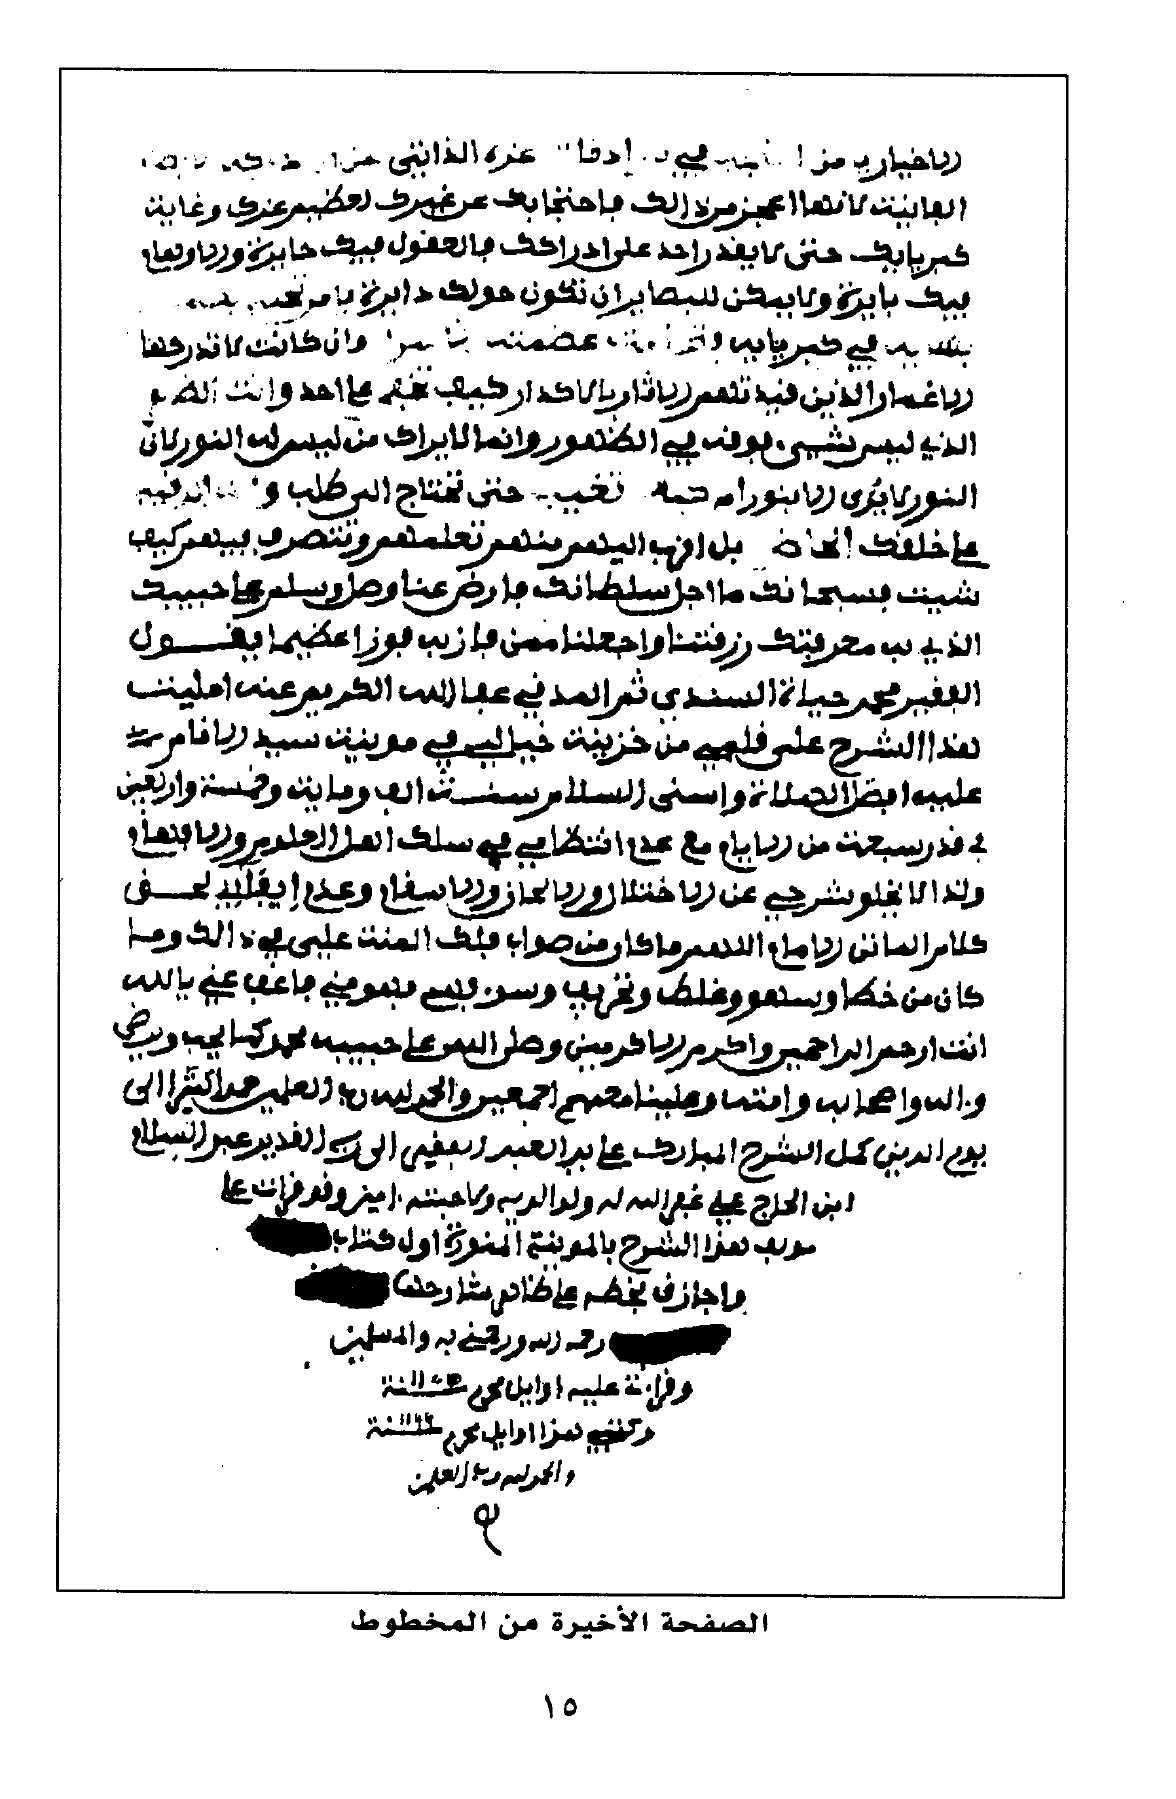 الفانية لانها اعجز من ذلك فاحتجابك عن غيرك لعظيم عزك وغاية
كبريايك حتى لا يقدر احد على ادراكك فالعقول فيك حايرة والاوهام
فيك بايرة ولا يمكن للبصاير ان تكون حولك دايرة يا من
في كبريايه عظمته وان كانت لا تدركها
الاغمار الذين قيدتهم الاثار بالاكدار كيف تخفى على احد وانت
الذي ليس شيء فوقه في الظهور وانما لا يراك من ليس له النور لان
النور لا يرى الا بنور حتى تحتاج الى طلب
على خلقك بل اقرب اليهم منهم تعلمهم وتتصرف فيهم كيف
شيت فسبحانك ما اجل سلطانك فارض عنا وصل وسلم على حبيبك
الذي به معرفتك رزقتنا واجعلنا ممن فاز به فوزا عظيما يقول
الفقير محمد حياة السندي ثم المدني عفا الله الكريم عنه امليت
هذا الشرح على قلمي من خزينة خيالي في مدينة سيد الانام
عليه افضل الصلاة واسنى السلام سنة الف وماية وخمسة واربعين
في قدر سبعة من الايام مع عدم انتظامي في سلك اهل العلوم والافهام
ولذا لا يخلو شرحي عن الاختلال والايجاز والاسقام وعدم ايفائي لحق
كلام الماتن الامام اللهم ما كان من صواب فلك المنة علي في ذلك وما
كان من خطا وسهو وغلط وتحريف وسوء فهم فهو مني فاعف عني يا الله
انت ارحم الراحمين واكرم الاكرمين وصلى اللهم على حبيبه محمد كما يحب ويرضى
وءاله واصحابه وامته وعلينا معهم اجمعين والحمد لله رب العلمين حمدا كثيرا الى
يوم الدين كمل الشرح المبارك على يد العبد الفقير الى ربه القدير عبد السلام
ابن الحاج علي غفر الله له ولوالديه ولاحبته ءامين وقد قرات على
مولف هذا الشرح بالمدينة المنورة اول كتاب
واجازني بخطه على
رحمه الله ورحمني به والمسلمين
وقراءتي عليه اوايل محرم سنة
وكتبي هذا اوايل محرم سنة
والحمد لله رب العلمين
الصفحة الأخيرة من المخطوط
١٥